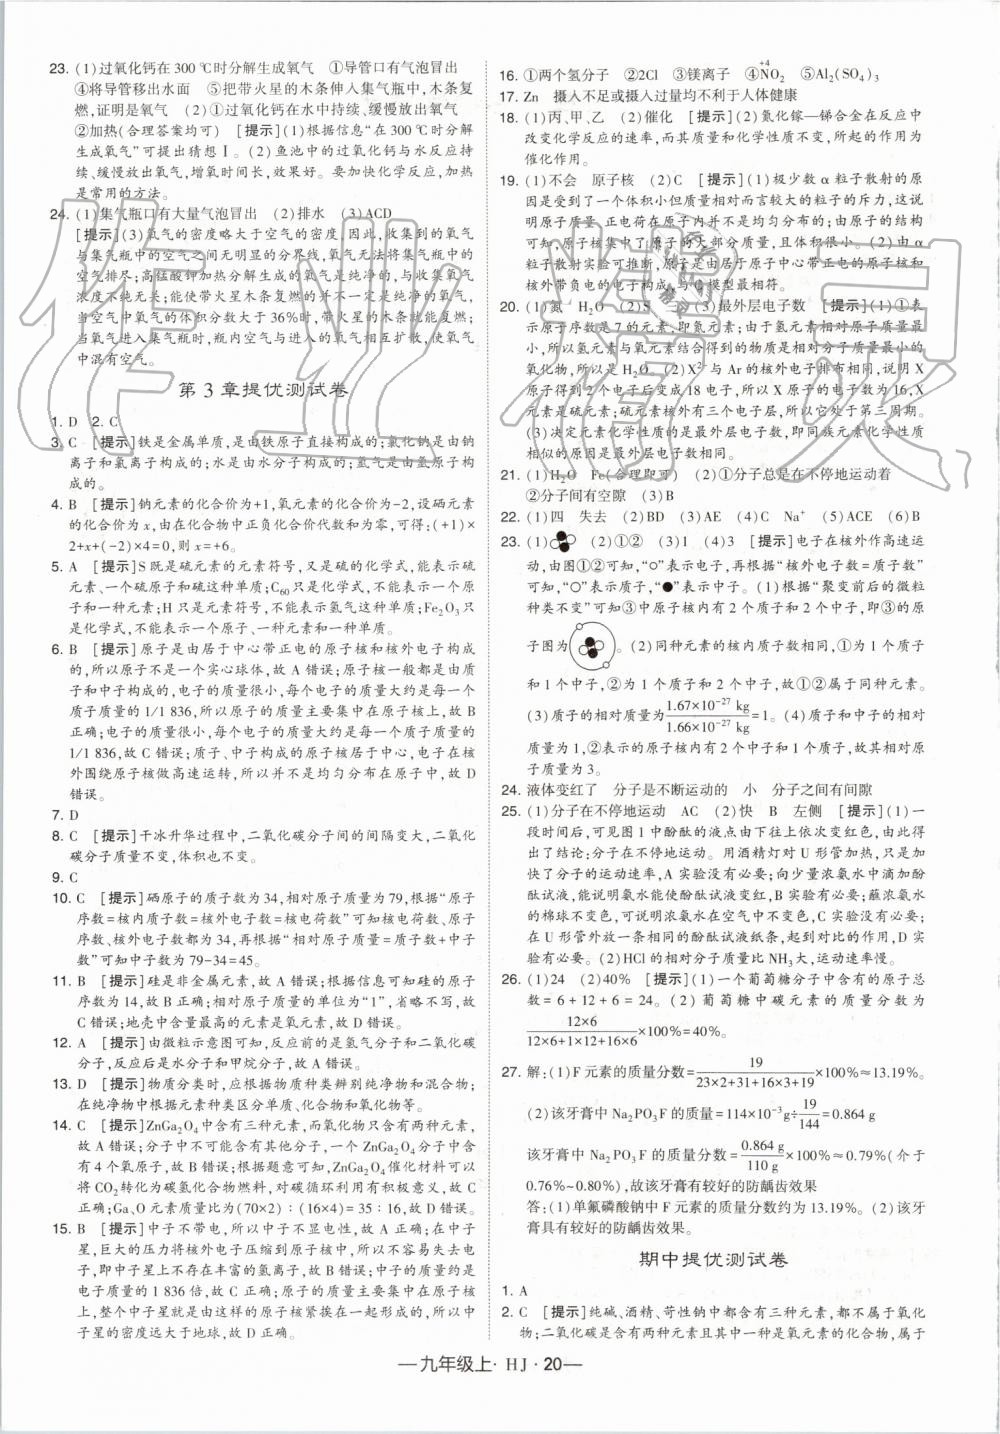 23. (1)过氧化钙在300 ℃时分解生成氧气 ①导管口有气泡冒出
④将导管移出水面 ⑤把带火星的木条伸入集气瓶中,木条复
燃,证明是氧气 (2)①过氧化钙在水中持续、缓慢放出氧气
②加热(合理答案均可) [提示](1)根据信息“在300 ℃时分解
生成氧气”可提出猜想Ⅰ。(2)鱼池中的过氧化钙与水反应持
续、缓慢放出氧气,增氧时间长,效果好。要加快化学反应,加热
是常用的方法。
24. (1)集气瓶口有大量气泡冒出 (2)排水 (3)ACD
[提示](3)氧气的密度略大于空气的密度,因此,收集到的氧气
与集气瓶中的空气之间无明显的分界线,氧气无法将集气瓶中的
空气排尽;高锰酸钾加热分解生成的氧气是纯净的,与收集氧气
浓度不纯无关;能使带火星木条复燃的并不一定是纯净的氧气,
当空气中氧气的体积分数大于36%时,带火星的木条就能复燃;
当氧气进入集气瓶时,瓶内空气与进入的氧气相互扩散,使氧气
中混有空气。
第3章提优测试卷
1. D 2. C
3. C [提示]铁是金属单质,是由铁原子直接构成的;氯化钠是由钠
离子和氯离子构成的;水是由水分子构成的;氢气是由氢原子构
成的。
4. B [提示]钠元素的化合价为+1,氧元素的化合价为-2,设硒元素
的化合价为x,由在化合物中正负化合价代数和为零,可得:(+1)×
2+x+(-2)×4=0,则x=+6。
5. A [提示]S既是硫元素的元素符号,又是硫的化学式,能表示硫
元素、一个硫原子和硫这种单质;C₆₀只是化学式,不能表示一个原
子和一种元素;H只是元素符号,不能表示氢气这种单质;Fe₂O₃只
是化学式,不能表示一个原子、一种元素和一种单质。
6. B [提示]原子是由居于中心带正电的原子核和核外电子构成
的,所以原子不是一个实心球体,故A错误;原子核一般都是由质
子和中子构成的,电子的质量很小,每个电子的质量大约是每一个
质子质量的1/1 836,所以原子的质量主要集中在原子核上,故B
正确;电子的质量很小,每个电子的质量大约是每一个质子质量的
1/1 836,故C错误;质子、中子构成的原子核居于中心,电子在核
外围绕原子核做高速运转,所以并不是均匀分布在原子中,故D
错误。
7. D
8. C [提示]干冰升华过程中,二氧化碳分子间的间隔变大,二氧化
碳分子质量不变,体积也不变。
9. C
10. C [提示]硒原子的质子数为34,相对原子质量为79,根据“原子
序数=核内质子数=核外电子数=核电荷数”可知核电荷数、原子
序数、核外电子数都为34,再根据“相对原子质量=质子数+中子
数”可知中子数为79-34=45。
11. B [提示]硅是非金属元素,故A错误;根据信息可知硅的原子
序数为14,故B正确;相对原子质量的单位为“1”,省略不写,故
C错误;地壳中含量最高的元素是氧元素,故D错误。
12. A [提示]由微粒示意图可知,反应前的是氢气分子和二氧化碳
分子,反应后是水分子和甲烷分子,故A错误。
13. D [提示]物质分类时,应根据物质种类辨别纯净物和混合物;
在纯净物中根据元素种类区分单质、化合物和氧化物等。
14. C [提示]ZnGa₂O₄中含有三种元素,而氧化物只含有两种元素,
故A错误;分子中不可能含有其他分子,一个ZnGa₂O₄分子中含
有4个氧原子,故B错误;根据题意可知,ZnGa₂O₄催化材料可以
将CO₂转化为碳氢化合物燃料,对碳循环利用有积极意义,故C
正确;Ga、O元素质量比为(70×2)∶(16×4)=35∶16,故D错误。
15. B [提示]中子不带电,所以中子不显电性,故A正确;在中子
星,巨大的压力将核外电子压缩到原子核中,所以不容易失去电
子,即中子星上不存在游离的氢离子,故B错误;中子的质量约是
电子质量的1 836倍,故C正确;原子质量主要集中在原子核
上,整个中子星就是由这样的原子核紧挨在一起形成的,所以中
子星的密度远大于地球,故D正确。
16. ①两个氢分子 ②2Cl ③镁离子 ④N⁺⁴O₂ ⑤Al₂(SO₄)₃
17. Zn 摄入不足或摄入过量均不利于人体健康
18. (1)丙、甲、乙 (2)催化 [提示](2)氮化镓—锑合金在反应中
改变化学反应的速率,而其质量和化学性质不变,所起的作用为
催化作用。
19. (1)不会 原子核 (2)C [提示](1)极少数α粒子散射的原
因是受到了一个体积小但质量相对而言较大的粒子的斥力,这说
明原子质量、正电荷在原子内并不是均匀分布的;由原子的结构
可知,原子核集中了原子的大部分质量,且体积很小。(2)由α
粒子散射实验可推断,原子是由居于原子中心带正电的原子核和
核外带负电的电子构成,与C模型最相符。
20. (1)氮 H₂O (2)S (3)最外层电子数 [提示](1)①表
示原子序数是7的元素,即氮元素;由于氢元素相对原子质量最
小,所以氢元素与氧元素结合得到的物质是相对分子质量最小的
氧化物,所以是H₂O。(2)X²⁻与Ar的核外电子排布相同,说明X
原子得到2个电子后变成18电子,所以X原子的电子数为16,X
元素是硫元素;硫元素核外有三个电子层,所以它处于第三周期。
(3)决定元素化学性质的是最外层电子数,即同族元素化学性质
相似的原因是最外层电子数相同。
21. (1)H₂O Fe(合理即可) (2)①分子总是在不停地运动着
②分子间有空隙 (3)B
22. (1)四 失去 (2)BD (3)AE (4)C Na⁺ (5)ACE (6)B
23. (1) (2)①② (3)1 (4)3 [提示]电子在核外作高速运
动,由图①②可知,“○”表示电子,再根据“核外电子数=质子数”
可知,“○”表示质子,“●”表示中子。(1)根据“聚变前后的微粒
种类不变”可知③中原子核内有2个质子和2个中子,即③的原
子图为 。(2)同种元素的核内质子数相同,①为1个质子
和1个中子,②为1个质子和2个中子,故①②属于同种元素。
(3)质子的相对质量为1.67×10⁻²⁷ kg/1.66×10⁻²⁷ kg=1。(4)质子和中子的相对
质量为1,②表示的原子核内有2个中子和1个质子,故其相对原
子质量为3。
24. 液体变红了 分子是不断运动的 小 分子之间有间隙
25. (1)分子在不停地运动 AC (2)快 B 左侧 [提示](1)一
段时间后,可见图1中酚酞的液点由下往上依次变红色,由此得
出了结论:分子在不停地运动。用酒精灯对U形管加热,只是加
快了分子的运动速率,A实验没有必要;向少量浓氨水中滴加酚
酞试液,能说明氨水能使酚酞试液变红,B实验有必要;蘸浓氨水
的棉球不变色,可说明浓氨水在空气中不变色,C实验没有必要;
在U形管外放一条相同的酚酞试液纸条,起到对比的作用,D实
验有必要。(2)HCl的相对分子质量比NH₃大,运动速率慢。
26. (1)24 (2)40% [提示](1)一个葡萄糖分子中含有的原子总
数=6+12+6=24。(2)葡萄糖中碳元素的质量分数为
12×6/12×6+1×12+16×6×100%=40%。
27. 解:(1)F元素的质量分数=19/23×2+31+16×3+19×100%≈13.19%。
(2)该牙膏中Na₂PO₃F的质量=114×10⁻³g÷19/144=0.864 g
该牙膏中Na₂PO₃F的质量分数=0.864 g/110 g×100%≈0.79%(介于
0.76%~0.80%),故该牙膏有较好的防龋齿效果
答:(1)单氟磷酸钠中F元素的质量分数约为13.19%。(2)该牙
膏具有较好的防龋齿效果。
期中提优测试卷
1. A
2. C [提示]纯碱、酒精、苛性钠中都含有三种元素,都不属于氧化
物;二氧化碳是含有两种元素且其中一种是氧元素的化合物,属于
—九年级上·HJ·20—
作业精灵